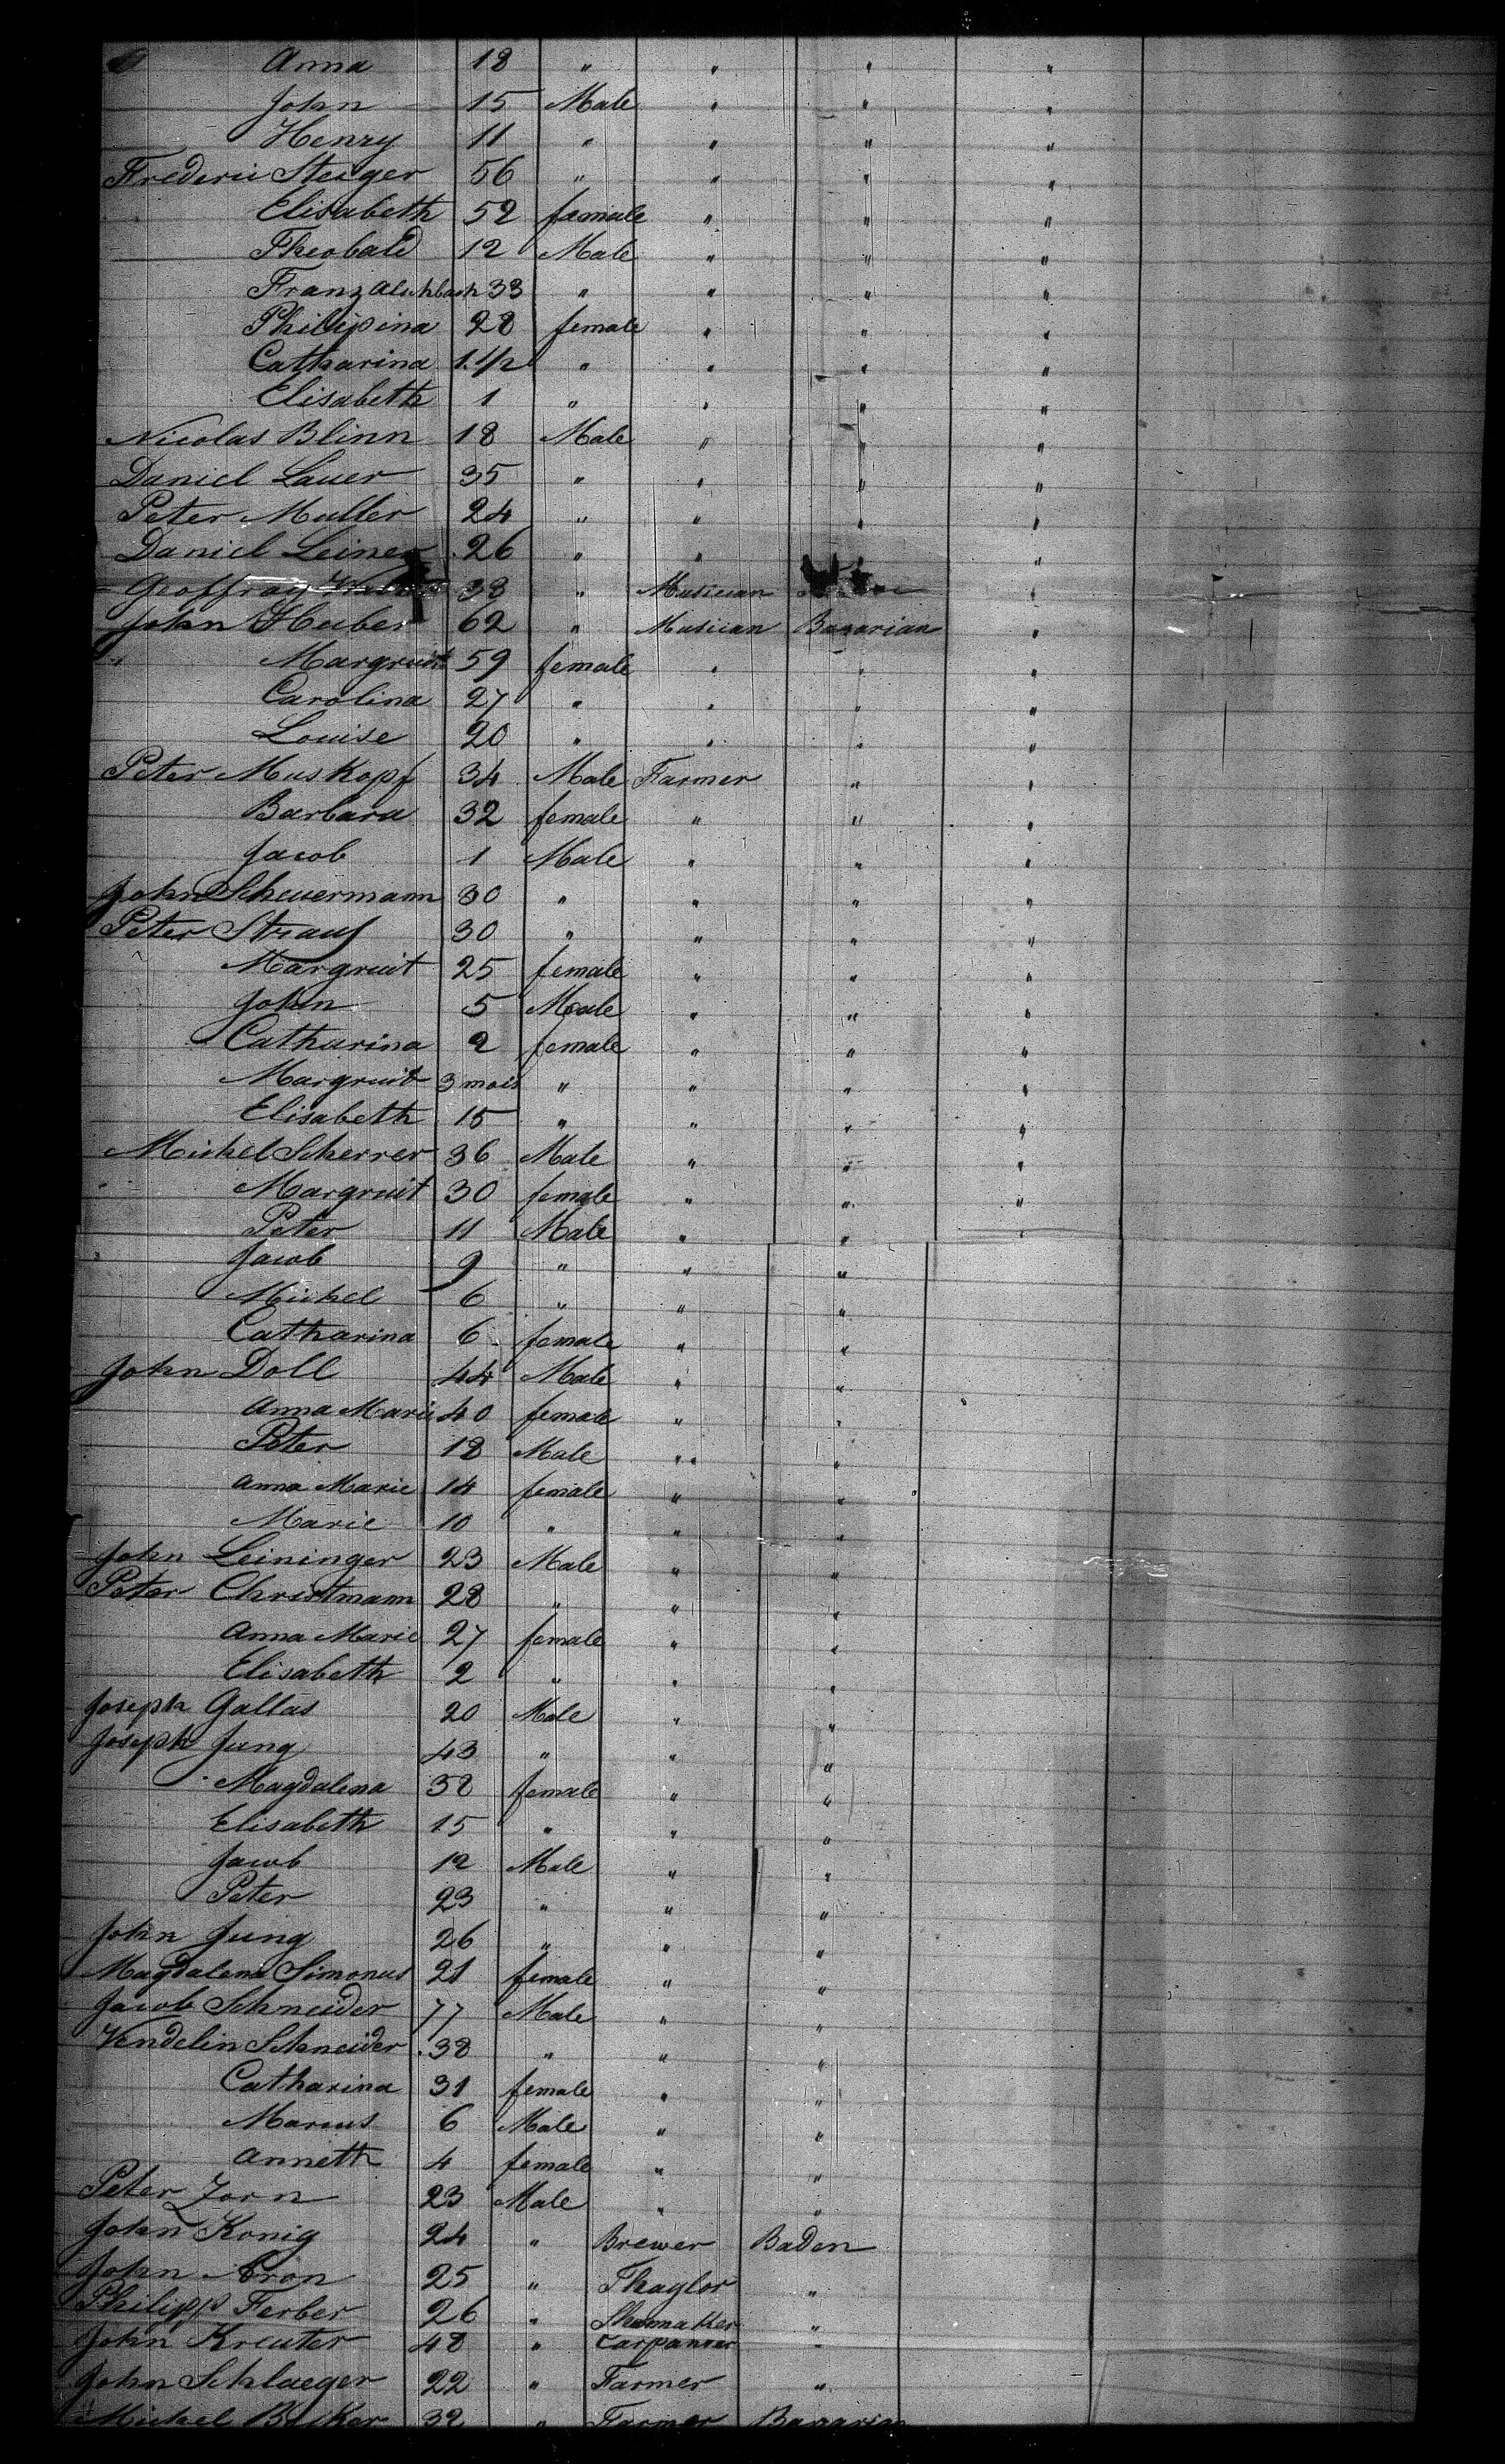 Anna 18 " " " "
John 15 Male " " "
Henry 11 " " " "
Frederic Steiger 56 " " " "
Elisabeth 52 female " " "
Theobald 12 Male " " "
Franz Alschbach 33 " " " "
Philipina 28 female " " "
Catharina 1.1/2 " " " "
Elisabeth 1 " " " "
Nicolas Blinn 18 Male " " "
Daniel Lauer 35 " " " "
Peter Muller 24 " " " "
Daniel Leiner 26 " " " "
Geoffray 38 " Musician "
John Huber 62 " Musiian Bavarian "
" Margruit 59 female " " "
Carolina 27 " " " "
Louise 20 " " " "
Peter Muskopf 34 Male Farmer " "
Barbara 32 female " " "
Jacob 1 Male " " "
John Scheuermann 30 " " " "
Peter Strauss 30 " " " "
Margruit 25 female " " "
John 5 Male " " "
Catharina 2 female " " "
Margruit 3 mois " " " "
Elisabeth 15 " " " "
Michel Scherrer 36 Male " " "
Margruit 30 female " " "
Peter 11 Male " " "
Jacob 9 " " "
Michel 6 " " "
Catharina 6 female " "
John Doll 44 Male " "
Anna Marie 40 female " "
Peter 18 Male " "
Anna Marie 14 female " "
Marie 10 " " "
John Leininger 23 Male " "
Peter Christmann 28 " " "
Anna Marie 27 female " "
Elisabeth 2 " " "
Joseph Gallas 20 Male " "
Joseph Jung 43 " " "
Magdalena 38 female " "
Elisabeth 15 " " "
Jacob 12 Male " "
Peter 23 " " "
John Jung 26 " " "
Magdalena Simonus 21 female " "
Jacob Schneider 77 Male " "
Vendelin Schneider 38 " " "
Catharina 31 female " "
Marius 6 Male " "
Anneth 4 female " "
Peter Zorn 23 Male " "
John Konig 24 " Brewer Baden
John 25 " Thaylor "
Philipp Ferber 26 " Shumaker "
John Kreuter 48 " Carpanter "
John Schlaeger 22 " Farmer "
Michel Becker 32 " Farmer Bavarian